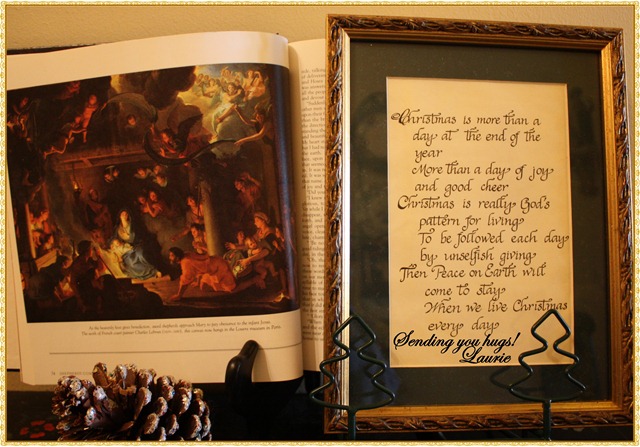 As the heavenly host gives benediction, awed shepherds approach Mary to pay obeisance to the infant Jesus.
The work of French court painter Charles Lebrun (1619-1690), this canvas now hangs in the Louvre museum in Paris.
Christmas is more than a
day at the end of the
year
More than a day of joy
and good cheer
Christmas is really God's
pattern for living
To be followed each day
by unselfish giving
Then Peace on Earth will
come to stay
When we live Christmas
every day
Sending you hugs!
Laurie